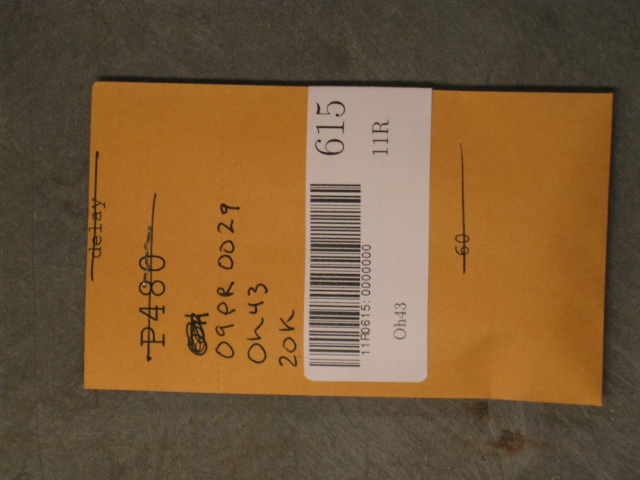 delay
P480
09PR0029
Oh43
20K
615
11R
11R0615:0000000
Oh43
60